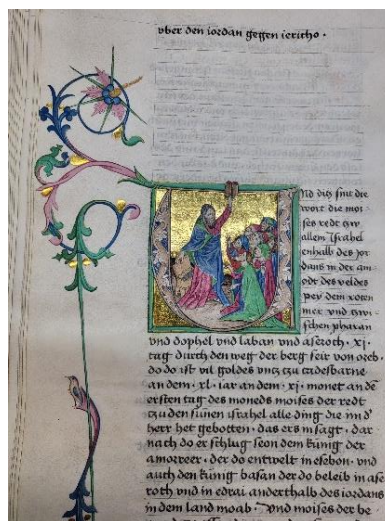 vber den iordan gegen iericho ·
Vnd ditz sint die
wort die moi-
ses redt zw
allem israhel
enhalb des jor
dans in der am
odt des veldes
pey dem roten
mer vnd zwi-
schen pharan
vnd dophel vnd laban vnd aseroth · xj ·
tag durch den weg der berg seir von oreb ·
do do ist vil goldes vntz zu cadesbarne
an dem · xl · iar an dem · xj · monet an de
ersten tag des moneds moises der redt
zu den sunen israhel alle ding die im d'
herr het gebotten · das ers in sagt · dar
nach do er schlug seon dem kunig der
amorreer · der do entwelt in esebon · vnd
auch den kunig basan der do beleib in ase
roth vnd in edrai anderthalb des iordans
in dem land moab · Vnd moises der be